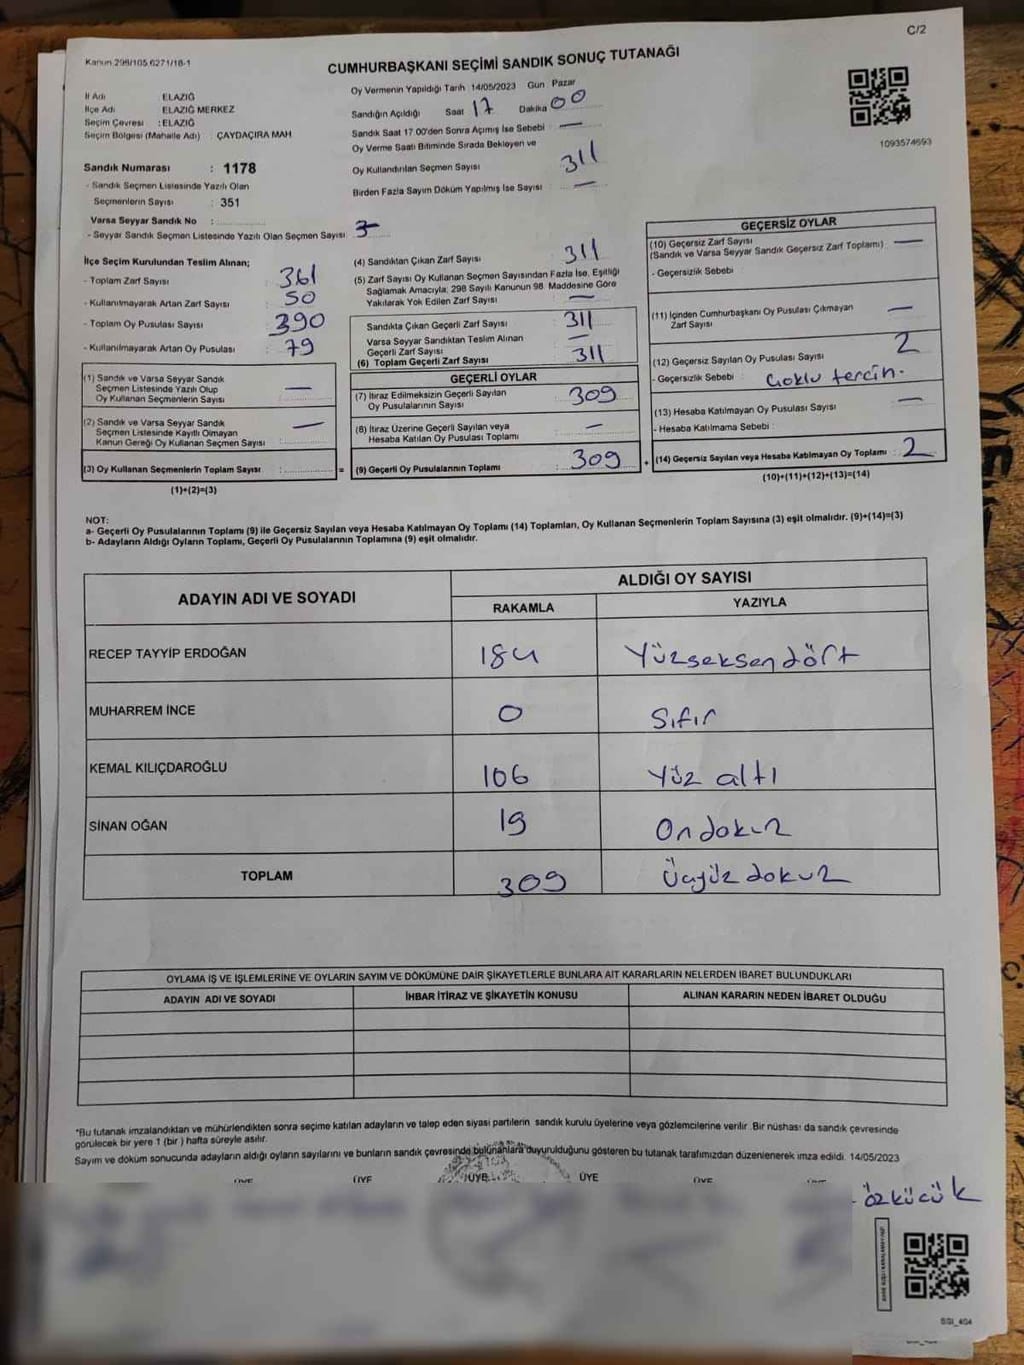 C/2
Kanun 298/105,6271/18-1
CUMHURBAŞKANI SEÇİMİ SANDIK SONUÇ TUTANAĞI
İl Adı : ELAZIĞ
İlçe Adı : ELAZIĞ MERKEZ
Seçim Çevresi : ELAZIĞ
Seçim Bölgesi (Mahalle Adı) : ÇAYDAÇIRA MAH
Sandık Numarası : 1178
- Sandık Seçmen Listesinde Yazılı Olan
Seçmenlerin Sayısı : 351
Varsa Seyyar Sandık No :
- Seyyar Sandık Seçmen Listesinde Yazılı Olan Seçmen Sayısı:
Oy Vermenin Yapıldığı Tarih 14/05/2023 Gün Pazar
Sandığın Açıldığı Saat 17 Dakika 00
Sandık Saat 17.00'den Sonra Açımış İse Sebebi : —
Oy Verme Saati Bitiminde Sırada Bekleyen ve
Oy Kullandırılan Seçmen Sayısı : 311
Birden Fazla Sayım Döküm Yapılmış İse Sayısı : —
1093574693
İlçe Seçim Kurulundan Teslim Alınan;
- Toplam Zarf Sayısı : 361
- Kullanılmayarak Artan Zarf Sayısı : 50
- Toplam Oy Pusulası Sayısı : 390
- Kullanılmayarak Artan Oy Pusulası : 79
(1) Sandık ve Varsa Seyyar Sandık
Seçmen Listesinde Yazılı Olup
Oy Kullanan Seçmenlerin Sayısı : —
(2) Sandık ve Varsa Seyyar Sandık
Seçmen Listesinde Kayıtlı Olmayan
Kanun Gereği Oy Kullanan Seçmen Sayısı : —
(3) Oy Kullanan Seçmenlerin Toplam Sayısı : =
(1)+(2)=(3)
(4) Sandıktan Çıkan Zarf Sayısı : 311
(5) Zarf Sayısı Oy Kullanan Seçmen Sayısından Fazla İse, Eşitliği
Sağlamak Amacıyla; 298 Sayılı Kanunun 98. Maddesine Göre
Yakılarak Yok Edilen Zarf Sayısı : —
Sandıkta Çıkan Geçerli Zarf Sayısı : 311
Varsa Seyyar Sandıktan Teslim Alınan
Geçerli Zarf Sayısı : —
(6) Toplam Geçerli Zarf Sayısı : 311
GEÇERLİ OYLAR
(7) İtiraz Edilmeksizin Geçerli Sayılan
Oy Pusulalarının Sayısı : 309
(8) İtiraz Üzerine Geçerli Sayılan veya
Hesaba Katılan Oy Pusulası Toplamı : —
(9) Geçerli Oy Pusulalarının Toplamı : 309 +
GEÇERSİZ OYLAR
(10) Geçersiz Zarf Sayısı
(Sandık ve Varsa Seyyar Sandık Geçersiz Zarf Toplamı) : —
- Geçersizlik Sebebi :
(11) İçinden Cumhurbaşkanı Oy Pusulası Çıkmayan
Zarf Sayısı : —
(12) Geçersiz Sayılan Oy Pusulası Sayısı : 2
- Geçersizlik Sebebi : Çoklu tercih.
(13) Hesaba Katılmayan Oy Pusulası Sayısı : —
- Hesaba Katılmama Sebebi :
(14) Geçersiz Sayılan veya Hesaba Katılmayan Oy Toplamı : 2
(10)+(11)+(12)+(13)=(14)
NOT:
a- Geçerli Oy Pusulalarının Toplamı (9) ile Geçersiz Sayılan veya Hesaba Katılmayan Oy Toplamı (14) Toplamları, Oy Kullanan Seçmenlerin Toplam Sayısına (3) eşit olmalıdır. (9)+(14)=(3)
b- Adayların Aldığı Oyların Toplamı, Geçerli Oy Pusulalarının Toplamına (9) eşit olmalıdır.
ADAYIN ADI VE SOYADI ALDIĞI OY SAYISI
RAKAMLA YAZIYLA
RECEP TAYYİP ERDOĞAN 184 Yüzseksendört
MUHARREM İNCE 0 Sıfır
KEMAL KILIÇDAROĞLU 106 Yüz altı
SİNAN OĞAN 19 Ondokuz
TOPLAM 309 Üçyüz dokuz
OYLAMA İŞ VE İŞLEMLERİNE VE OYLARIN SAYIM VE DÖKÜMÜNE DAİR ŞİKAYETLERLE BUNLARA AİT KARARLARIN NELERDEN İBARET BULUNDUKLARI
ADAYIN ADI VE SOYADI İHBAR İTİRAZ VE ŞİKAYETİN KONUSU ALINAN KARARIN NEDEN İBARET OLDUĞU
*Bu tutanak imzalandıktan ve mühürlendikten sonra seçime katılan adayların ve talep eden siyasi partilerin sandık kurulu üyelerine veya gözlemcilerine verilir. Bir nüshası da sandık çevresinde
görülecek bir yere 1 (bir) hafta süreyle asılır.
Sayım ve döküm sonucunda adayların aldığı oyların sayılarını ve bunların sandık çevresinde bulunanlara duyurulduğunu gösteren bu tutanak tarafımızdan düzenlenerek imza edildi. 14/05/2023
ÜYE ÜYE ÜYE ÜYE ÜYE ÜYE
özküçük